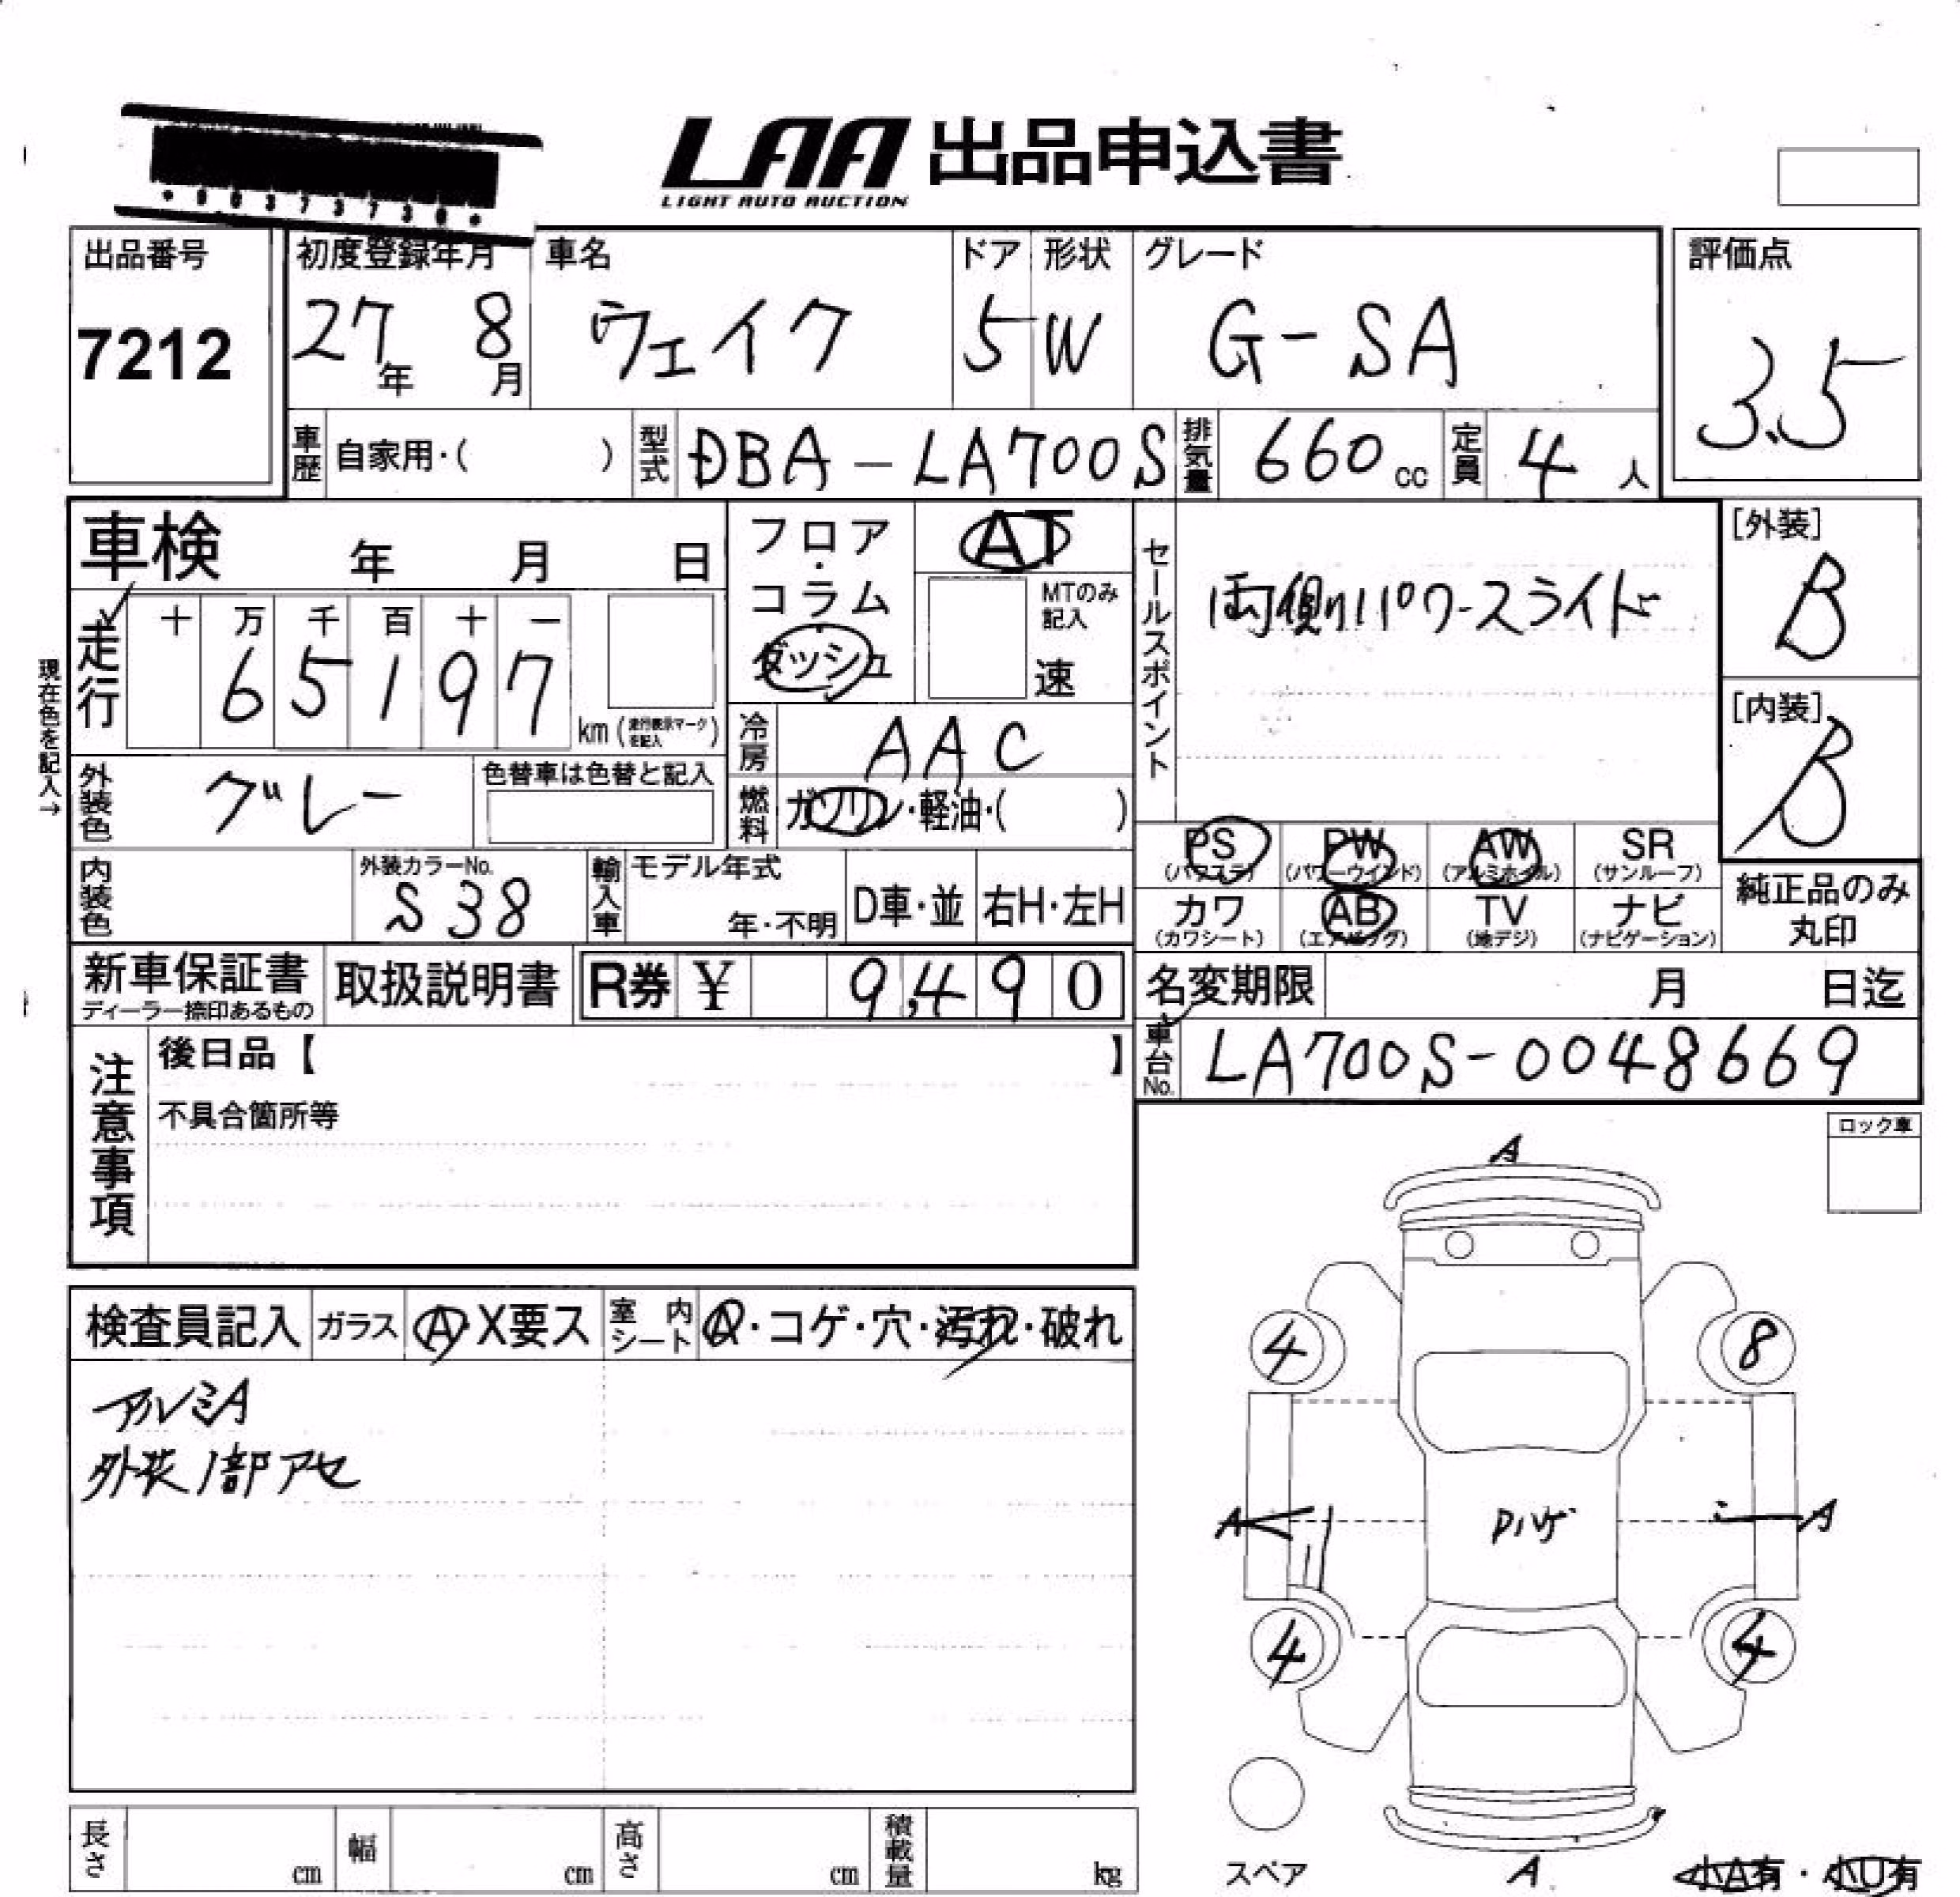 LAA 出品申込書
LIGHT AUTO AUCTION
出品番号
7212
初度登録年月
27年 8月
車名
ウェイク
ドア
5
形状
W
グレード
G-SA
評価点
3.5
車歴 自家用・( )
型式 DBA-LA700S
排気量 660 cc
定員 4 人
車検 年 月 日
フロア・コラム・ダッシュ
AT
MTのみ記入
速
セールスポイント
両側パワースライド
[外装]
B
[内装]
B
現在色を記入→
走行
十 万 千 百 十 一
6 5 1 9 7
km(走行表示マークを記入)
冷房 AAC
燃料 ガソリン・軽油・( )
外装色 グレー
色替車は色替と記入
内装色
外装カラーNo.
S38
輸入車
モデル年式
年・不明
D車・並
右H・左H
PS
(パワステ)
PW
(パワーウインド)
AW
(アルミホイル)
SR
(サンルーフ)
カワ
(カワシート)
AB
(エアバッグ)
TV
(地デジ)
ナビ
(ナビゲーション)
純正品のみ
丸印
新車保証書
ディーラー捺印あるもの
取扱説明書
R券 ¥ 9,490
名変期限 月 日迄
車台No. LA700S-0048669
注意事項
後日品【 】
不具合箇所等
ロック車
検査員記入
ガラス
A・X要ス
室内シート
A・コゲ・穴・汚れ・破れ
アルミA
外装1部アセ
A
4
8
A
A
4
4
スペア
A
小A有・小U有
長さ cm
幅 cm
高さ cm
積載量 kg